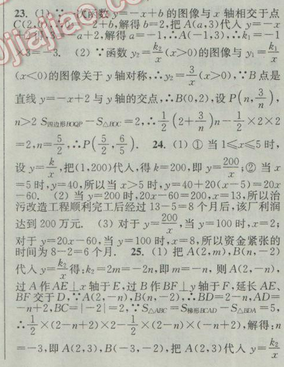 23. (1) ∵一次函数 y=-x+b 的图像与 x 轴相交于点
C(2,0),∴-2+b,解得 b=2,把 A(a,3)代入 y=-x
+2,3=-a+2,解得 a=-1,∴A(-1,3),∴k₁=-1
×3=-3. (2) ∵函数 y₂=k₂/x(x>0)的图像与 y₁=k₁/x
(x<0)的图像关于 y 轴对称,∴y₂=3/x(x>0),∵B 点是
直线 y=-x+2 与 y 轴的交点,∴B(0,2),设 P(n,3/n),
n>2 S四边形BOQP-S△BOC=2,∴1/2(2+3/n)n-1/2×2×2
=2,n=5/2,∴P(5/2,6/5). 24. (1) ① 当 1≤x≤5 时,
设 y=k/x,把(1,200)代入,得 k=200,即 y=200/x;② 当 x
=5 时,y=40,所以当 x>5 时,y=40+20(x-5)=20x
-60. (2) 当 y=200 时,20x-60=200,x=13,所以治
污改造工程顺利完工后经过 13-5=8 个月后,该厂利润
达到 200 万元. (3) 对于 y=200/x,当 y=100 时,x=2;
对于 y=20x-60,当 y=100 时,x=8,所以资金紧张的
时间为 8-2=6 个月. 25. (1) 把 A(2,m),B(n,-2)
代入 y=k₂/x得:k₂=2m=-2n,即 m=-n,则 A(2,-n),
过 A 作 AE⊥x 轴于 E,过 B 作 BF⊥y 轴于 F,延长 AE、
BF 交于 D,∵A(2,-n),B(n,-2),∴BD=2-n,AD=
-n+2,BC=|-2|=2,∵S△ABC=S梯形BCAD-S△BDA=5,
∴1/2×(2-n+2)×2-1/2×(2-n)×(-n+2),解得:n
=-3,即 A(2,3),B(-3,-2),把 A(2,3)代入 y=k₂/x